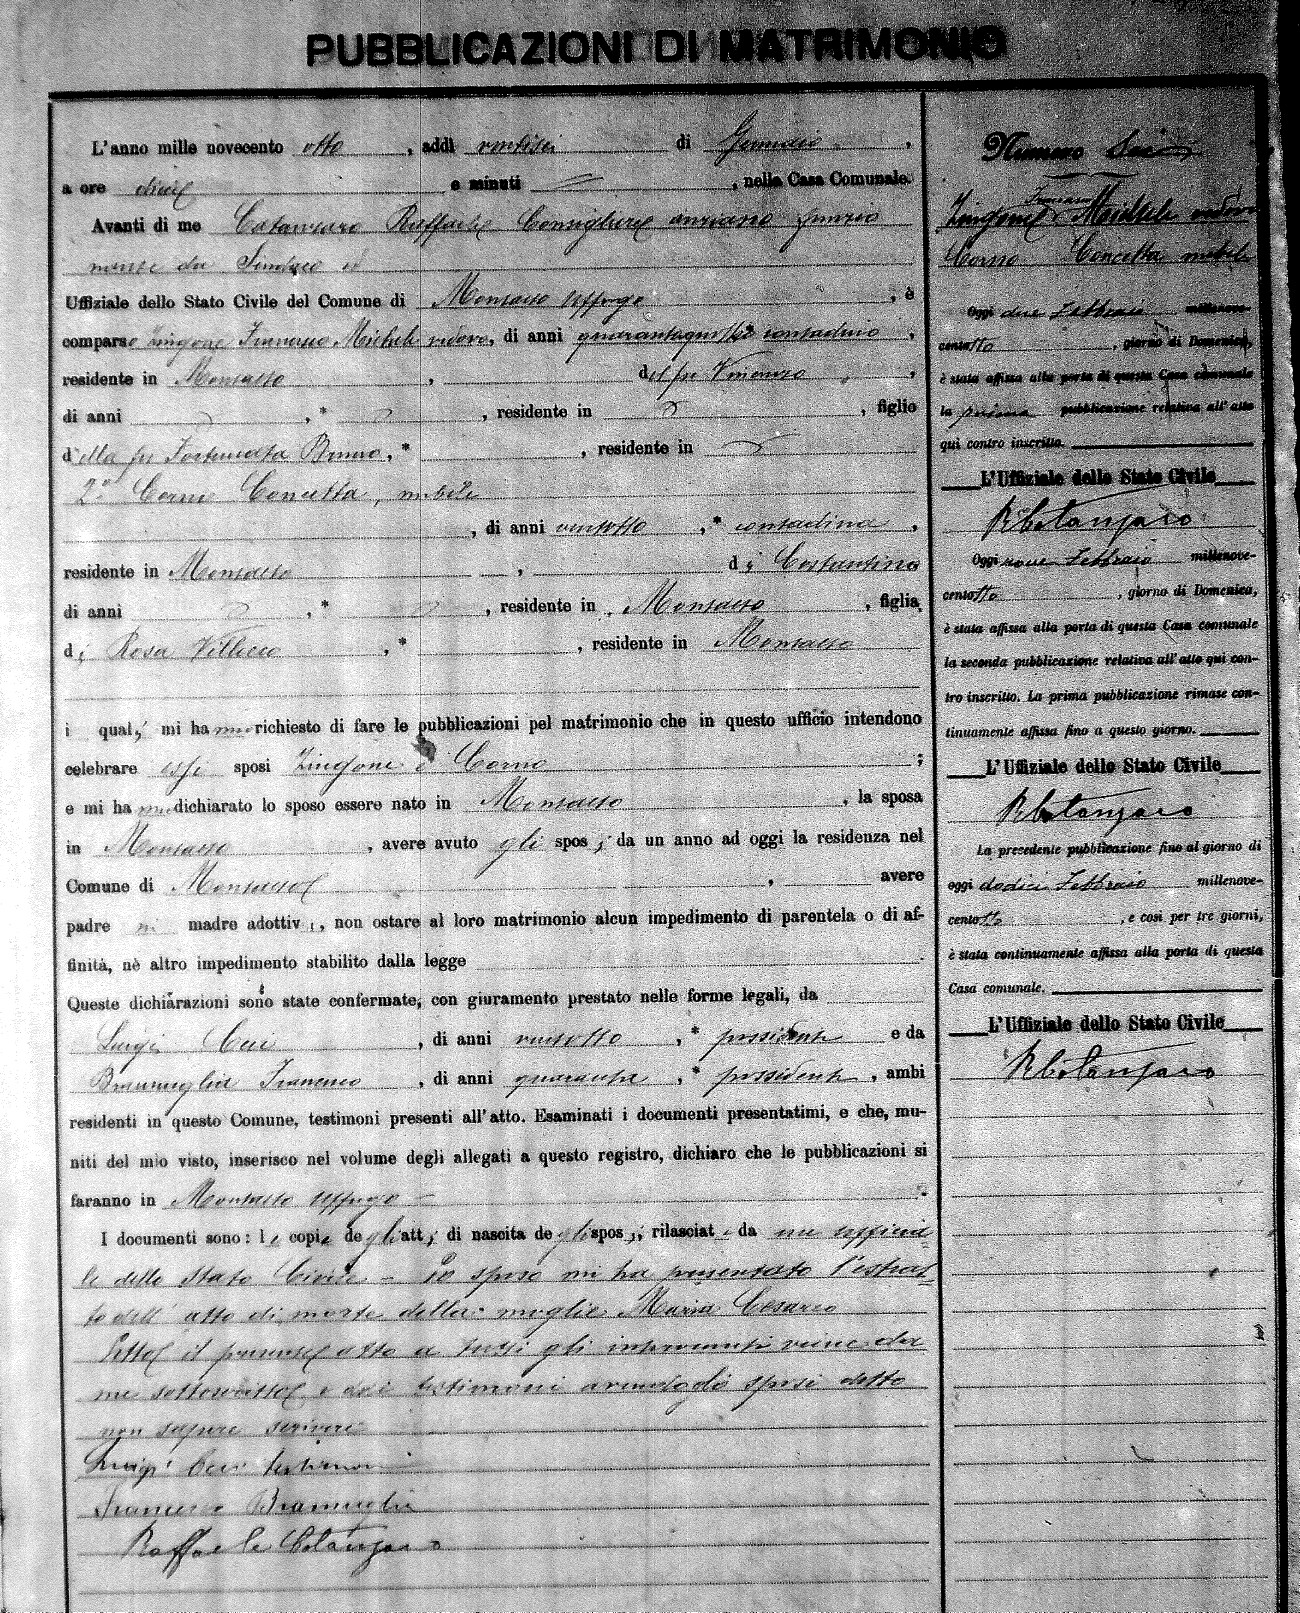 PUBBLICAZIONI DI MATRIMONIO
L'anno mille novecento otto, addì ventisei di Gennaio,
a ore dieci e minuti =, nella Casa Comunale.
Avanti di me Catanzaro Raffaele Consigliere anziano funzio
nante da Sindaco ed
Uffiziale dello Stato Civile del Comune di Montalto Uffugo, è
comparso Zingone Francesco Michele vedovo, di anni contadino,
residente in Montalto, del fu Vincenzo,
di anni, * , residente in, figlio
della fu Fortunata Bruno, * , residente in
2° Corno Concetta, nubile
, di anni ventotto, * contadina,
residente in Montalto, di Costantino
di anni, * , residente in Montalto, figlia
di Rosa, * , residente in Montalto
i quali mi hanno richiesto di fare le pubblicazioni pel matrimonio che in questo ufficio intendono
celebrare essi sposi Zingone e Corno;
e mi hanno dichiarato lo sposo essere nato in Montalto, la sposa
in Montalto, avere avuto gli sposi da un anno ad oggi la residenza nel
Comune di Montalto, avere
padre ni madre adottivi, non ostare al loro matrimonio alcun impedimento di parentela o di af-
finità, nè altro impedimento stabilito dalla legge
Queste dichiarazioni sono state confermate, con giuramento prestato nelle forme legali, da
Luigi, di anni ventotto, * possidente e da
Bramuglia Francesco, di anni quaranta, * possidente, ambi
residenti in questo Comune, testimoni presenti all'atto. Esaminati i documenti presentatimi, e che, mu-
niti del mio visto, inserisco nel volume degli allegati a questo registro, dichiaro che le pubblicazioni si
faranno in Montalto Uffugo.
I documenti sono: le copie degli atti di nascita degli sposi, rilasciate da me Ufficia
le dello Stato Civile - Lo sposo mi ha presentato l'estrat
to dell'atto di morte della moglie Maria Cesario
Letto il presente atto a tutti gli intervenuti viene da
me sottoscritto e dai testimoni avendo gli sposi detto
non sapere scrivere
Luigi testimone
Francesco Bramuglia
Raffaele Catanzaro
Numero Sei
Francesco
Zingone Michele vedovo
Corno Concetta nubile
Oggi due Febbraio millenove-
centotto, giorno di Domenica,
è stata affissa alla porta di questa Casa comunale
la prima pubblicazione relativa all'atto
qui contro inscritto.
L'Uffiziale dello Stato Civile
RCatanzaro
Oggi nove Febbraio millenove-
centotto, giorno di Domenica,
è stata affissa alla porta di questa Casa comunale
la seconda pubblicazione relativa all'atto qui con-
tro inscritto. La prima pubblicazione rimase con-
tinuamente affissa fino a questo giorno.
L'Uffiziale dello Stato Civile
RCatanzaro
La precedente pubblicazione fino al giorno di
oggi dodici Febbraio millenove-
centotto, e così per tre giorni,
è stata continuamente affissa alla porta di questa
Casa comunale.
L'Uffiziale dello Stato Civile
RCatanzaro